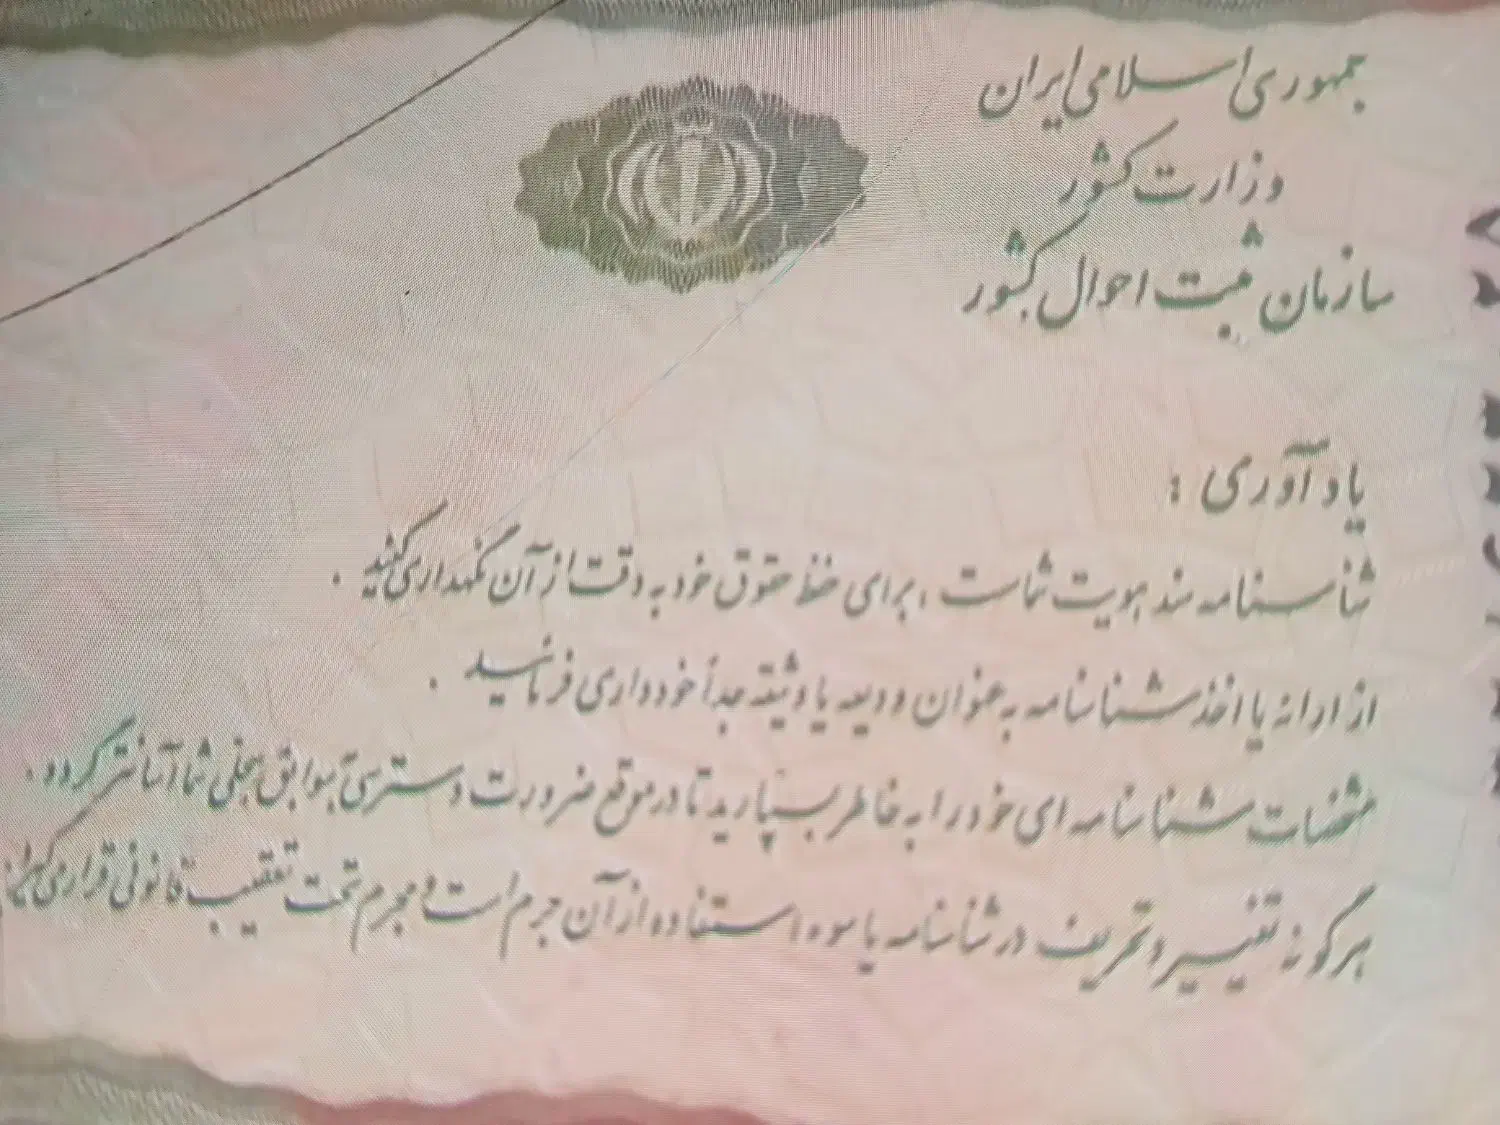 جمهوری اسلامی ایران
وزارت کشور
سازمان ثبت احوال کشور
یادآوری :
شناسنامه سند هویت شماست ، برای حفظ حقوق خود به دقت از آن نگهداری کنید .
از ارائه یا اخذ شناسنامه به عنوان ودیعه یا وثیقه جداً خودداری فرمائید .
مشخصات شناسنامه ای خود را به خاطر بسپارید تا در موقع ضرورت دسترسی به سوابق سجلی شما آسانتر گردد .
هرگونه تغییر و تحریف در شناسنامه یا سوء استفاده از آن جرم است و مجرم تحت تعقیب قانونی قرار